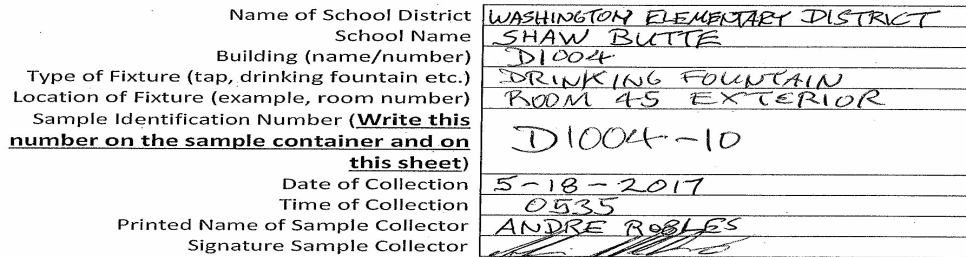 Name of School District WASHINGTON ELEMENTARY DISTRICT
School Name SHAW BUTTE
Building (name/number) D1004
Type of Fixture (tap, drinking fountain etc.) DRINKING FOUNTAIN
Location of Fixture (example, room number) ROOM 45 EXTERIOR
Sample Identification Number (Write this
number on the sample container and on
this sheet) D1004-10
Date of Collection 5-18-2017
Time of Collection 0535
Printed Name of Sample Collector ANDRE ROBLES
Signature Sample Collector